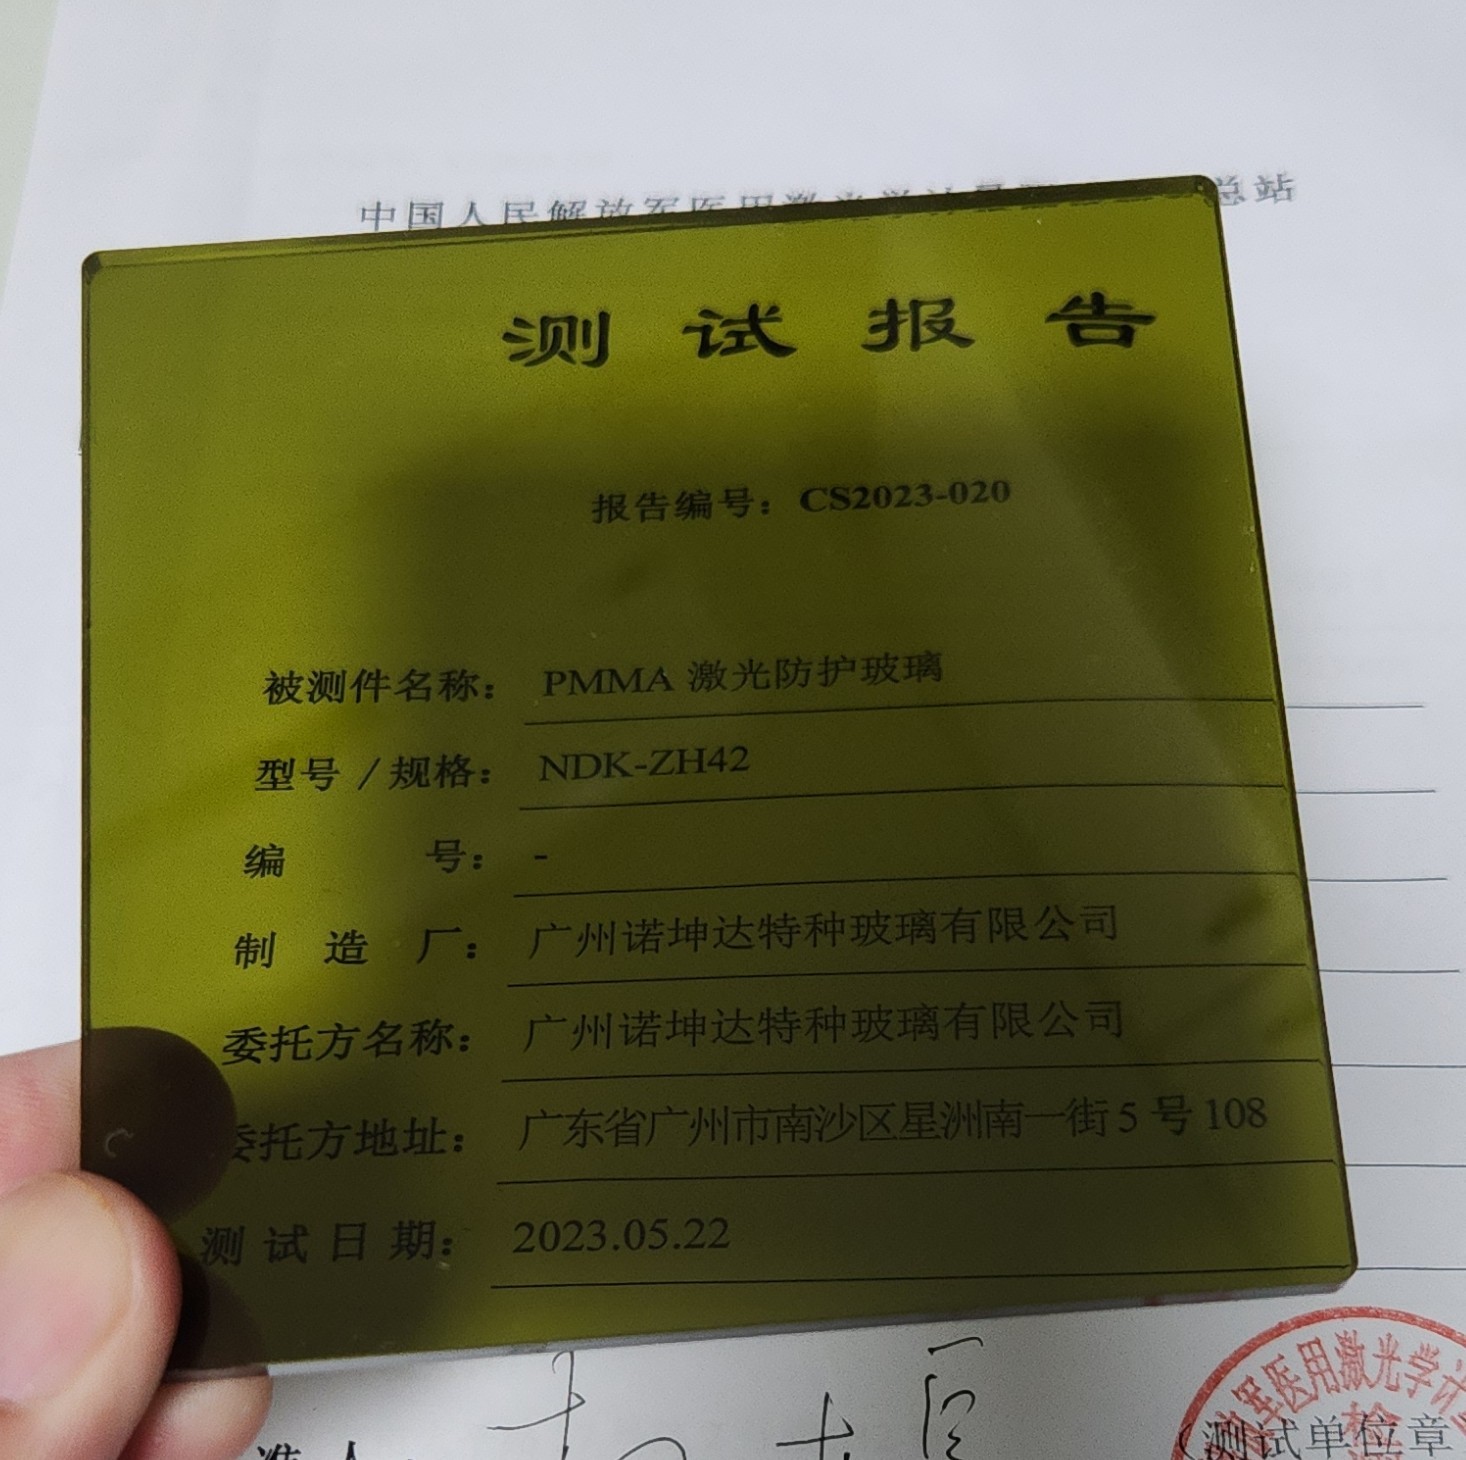 中国人民解放军医用激光学计量 总站
测试报告
报告编号：CS2023-020
被测件名称：PMMA 激光防护玻璃
型号/规格：NDK-ZH42
编号：-
制造厂：广州诺坤达特种玻璃有限公司
委托方名称：广州诺坤达特种玻璃有限公司
委托方地址：广东省广州市南沙区星洲南一街5号108
测试日期：2023.05.22
准人
军医用激光学计
(测试单位章